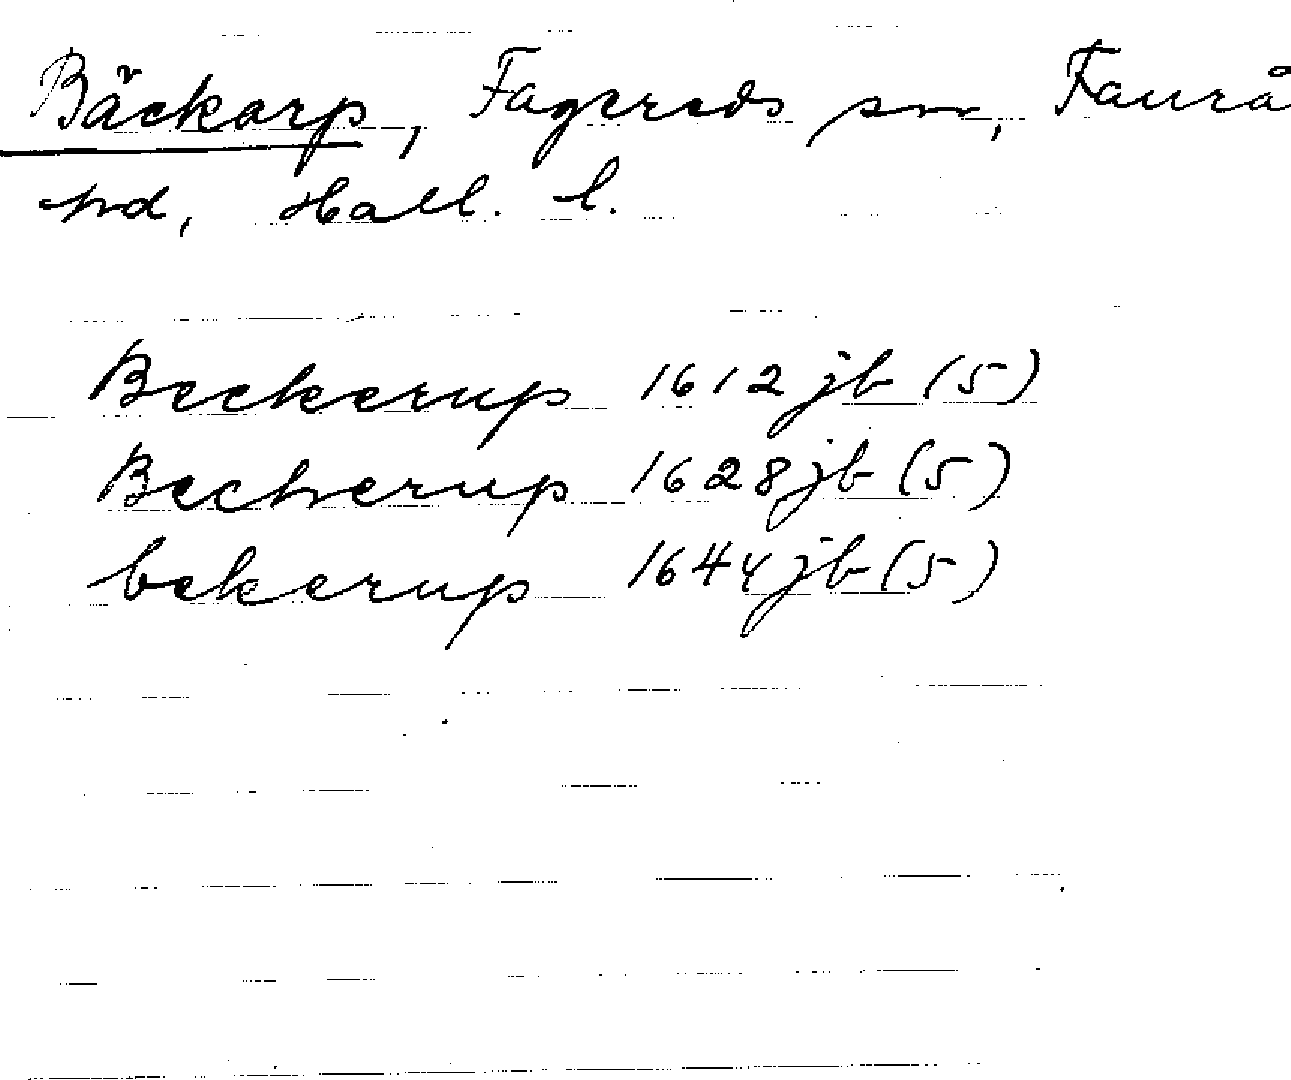 Bäckarp, Fagereds sn, Faurå
hd, Hall. l.
Beckerup 1612 jb (5)
Becherup 1628 jb (5)
bekerup 1644 jb (5)